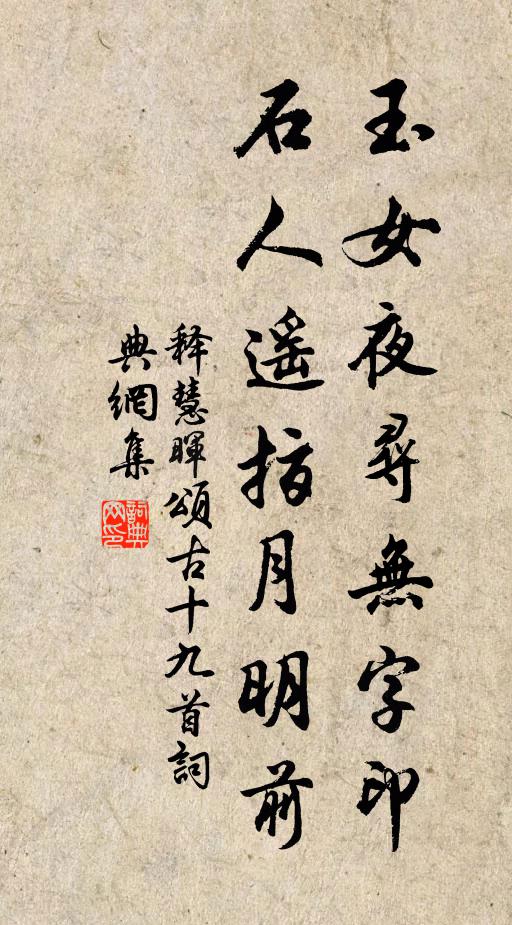 玉女夜尋無字印
石人遥指月明前
释慧暉頌古十九首詞
典網集
詞典
网印